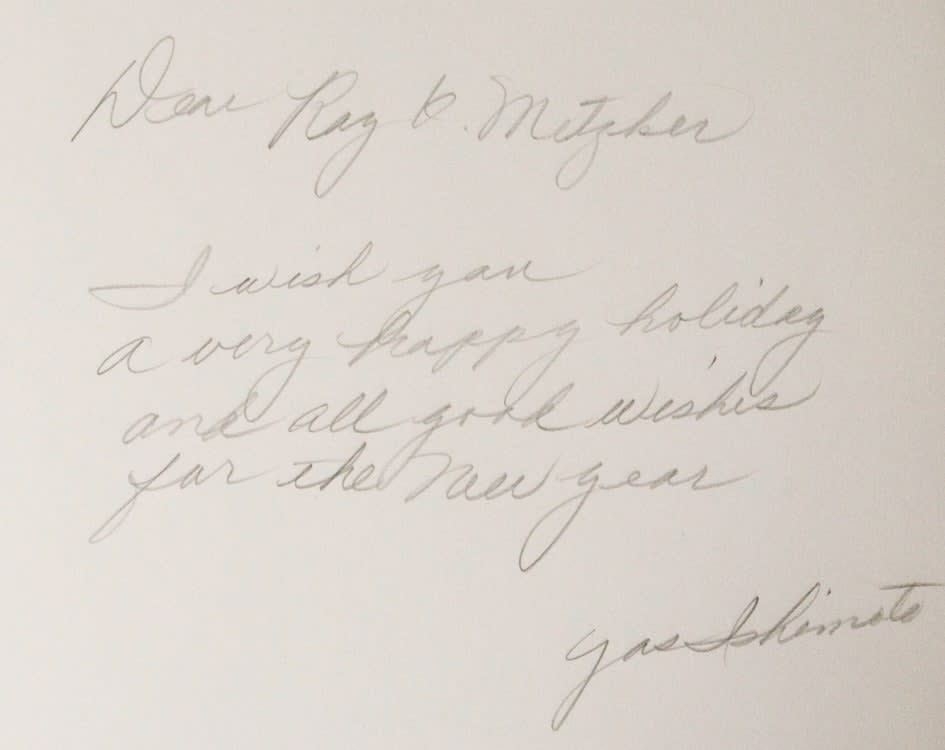 Dear Ray K. Metzker
I wish you
a very happy holiday
and all good wishes
for the New year
Yas Ishimoto